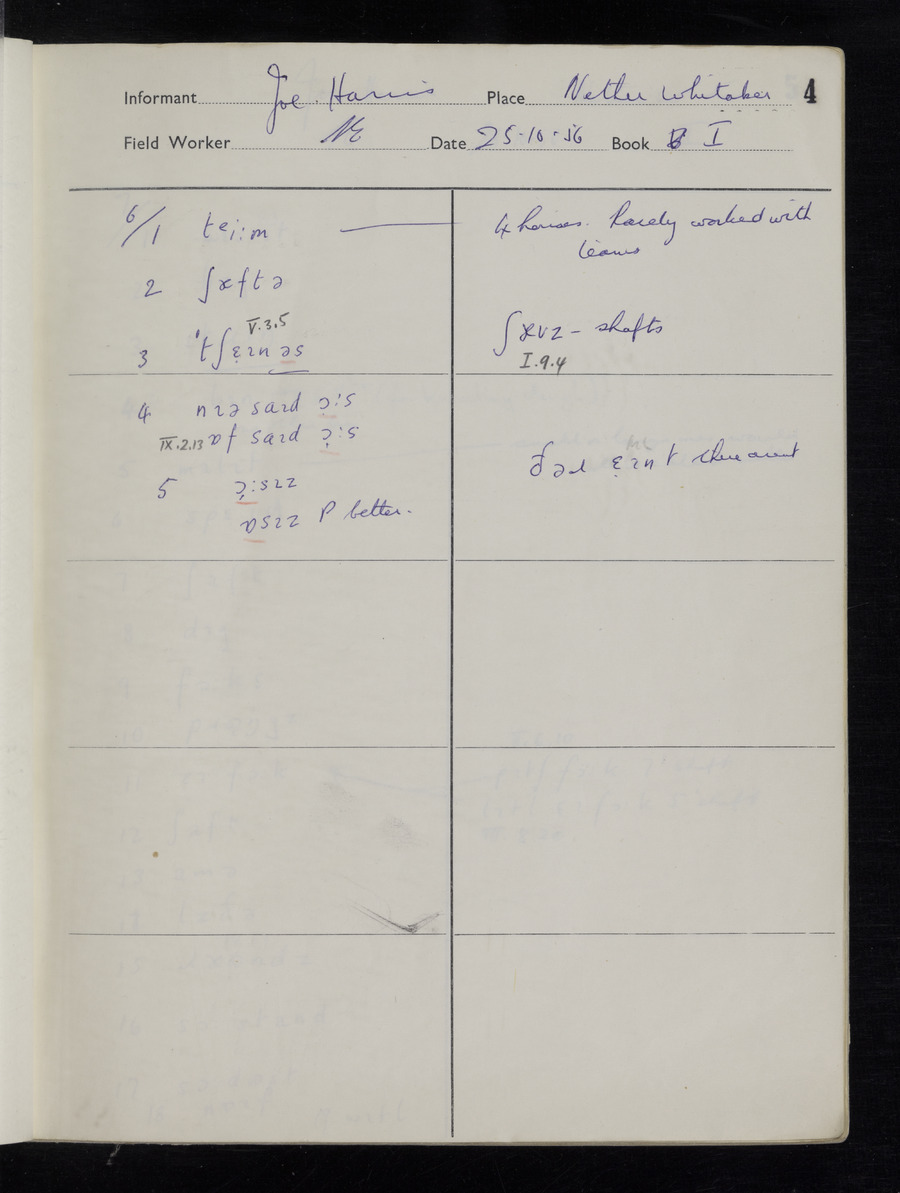 Informant Joe. Harris Place Nether Whitaker 4
Field Worker Date 25-10-56 Book I
6/1 teɪ:m 4 horses. Rarely worked with
teams
2 ʃæftə
V.3.5
3 'tʃɛɪnəs ʃævz - shafts
I.9.4
4 nɪə saɪd ɔ:s
IX.2.13 ɒf saɪd ɔ:s
ðəɪ ɛɪnt there arent
5 ɔ:sɪz
ɒsɪz P better.